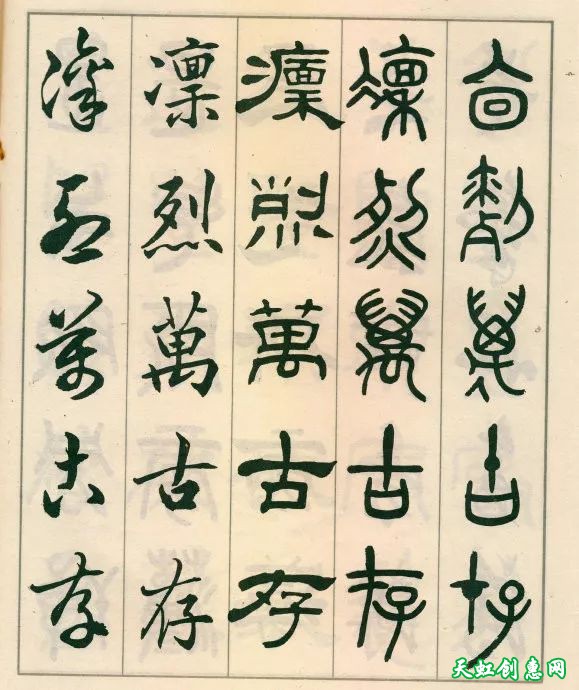 凜烈萬古存
凜烈萬古存
凜烈萬古存
凜烈萬古存
凜烈萬古存
天虹创惠网